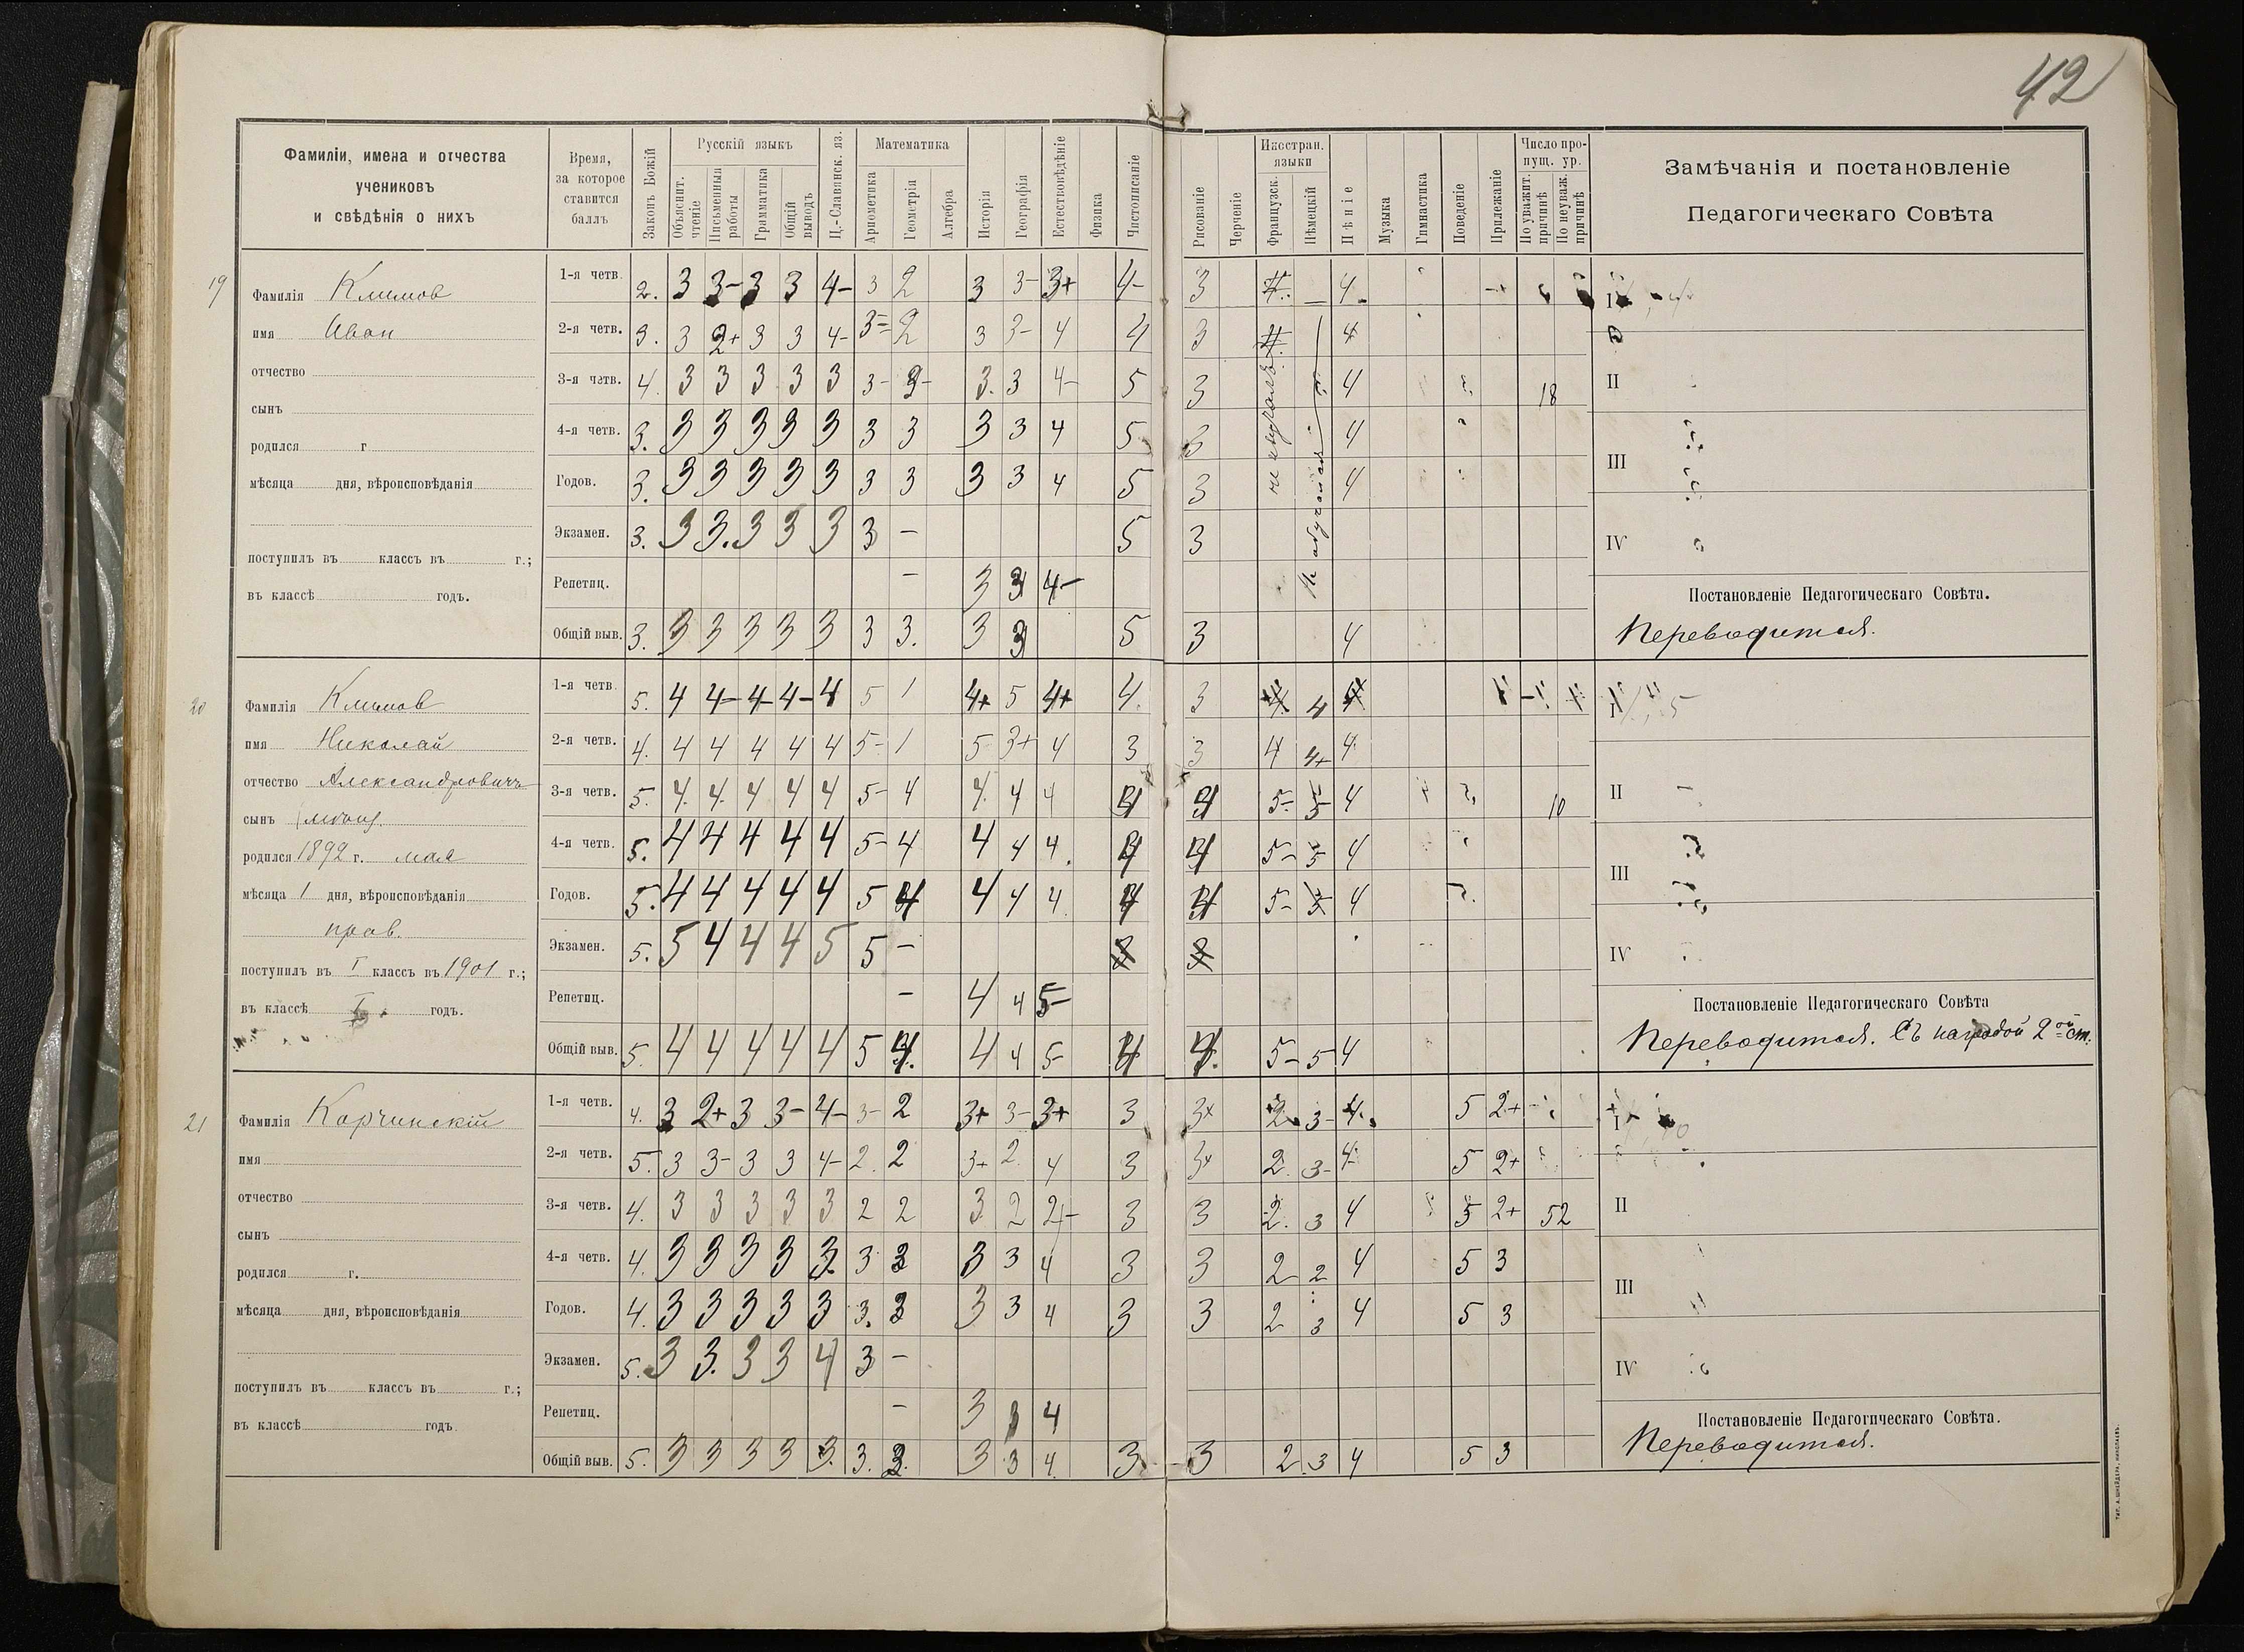 42
Фамиліи, имена и отчества
учениковъ
и свѣдѣнія о нихъ
Время,
за которое
ставится
баллъ
Законъ Божій
Русскій языкъ
Объяснит. чтеніе
Письменныя работы
Грамматика
Общій выводъ
Ц.-Славянск. яз.
Математика
Ариѳметика
Геометрія
Алгебра
Исторія
Географія
Естествовѣдѣніе
Физика
Чистописаніе
Рисованіе
Черченіе
Иностран.
языки
Французск.
Нѣмецкій
Пѣніе
Музыка
Гимнастика
Поведеніе
Прилежаніе
Число про-
пущ. ур.
По уважит. причинѣ
По неуваж. причинѣ
Замѣчанія и постановленіе
Педагогическаго Совѣта
19
Фамилія Климов
имя Иван
отчество
сынъ
родился г
мѣсяца дня, вѣроисповѣданія
поступилъ въ классъ въ г.;
въ классѣ годъ.
1-я четв. 2. 3 3- 3 3 4- 3 2 3 3- 3+ 4- 3 4. 4.
2-я четв. 3. 3 2+ 3 3 4- 3= 2 3 3- 4 4 3 4. 4
3-я четв. 4. 3 3 3 3 3 3- 3. 3 4- 5 3 4 18
4-я четв. 3. 3 3 3 3 3 3 3 3 3 4 5 3 4
Годов. 3. 3 3 3 3 3 3 3 3 3 4 5 3 4
Экзамен. 3. 3 3. 3 3 3 3 – 5 3
Репетиц. – 3 3 4-
Общій выв. 3. 3 3 3 3 3 3 3. 3 3 5 3 4
не обучался
I
II
III
IV
Постановленіе Педагогическаго Совѣта.
Переводится.
20
Фамилія Климов
имя Николай
отчество Александровичъ
сынъ мѣщ.
родился 1892 г. мая
мѣсяца 1 дня, вѣроисповѣданія
прав.
поступилъ въ I классъ въ 1901 г.;
въ классѣ I годъ.
1-я четв. 5. 4 4- 4- 4- 4 5 1 4+ 5 4+ 4. 3 4. 4 4
2-я четв. 4. 4 4 4 4 4 5- 1 5 3+ 4 3 3 4 4+ 4
3-я четв. 5. 4. 4. 4 4 4 5- 4 4. 4 4 4 4 5- 5 4 10
4-я четв. 5. 4 4 4 4 4 5- 4 4 4 4. 4 4 5- 5 4
Годов. 5. 4 4 4 4 4 5 4 4 4 4. 4 4 5- 5 4
Экзамен. 5. 5 4 4 4 5 5 – 3 3
Репетиц. – 4 4 5-
Общій выв. 5. 4 4 4 4 4 5 4. 4 4 5- 4 4. 5- 5 4
I
II
III
IV
Постановленіе Педагогическаго Совѣта
Переводится. Съ наградой 2ой ст.
21
Фамилія Корчинскій
имя
отчество
сынъ
родился г.
мѣсяца дня, вѣроисповѣданія
поступилъ въ классъ въ г.;
въ классѣ годъ.
1-я четв. 4. 3 2+ 3 3- 4- 3- 2 3+ 3- 3+ 3 3+ 2. 3- 4. 5 2+
2-я четв. 5. 3 3- 3 3 4- 2. 2 3+ 2. 4 3 3+ 2. 3- 4- 5 2+
3-я четв. 4. 3 3 3 3 3 2 2 3 2 3 3 2. 3 4 5 2+ 52
4-я четв. 4. 3 3 3 3 3. 3 3 3 3 4 3 3 2 2 4 5 3
Годов. 4. 3 3 3 3 3 3. 3 3 3 4 3 3 2 3 4 5 3
Экзамен. 5. 3 3. 3 3 4 3 –
Репетиц. – 3 3 4
Общій выв. 5. 3 3 3 3 3. 3. 3. 3 3 4. 3 3 2. 3 4 5 3
I
II
III
IV
Постановленіе Педагогическаго Совѣта.
Переводится.
ТИП. А. ШНЕЙДЕРА, НИКОЛАЕВЪ.